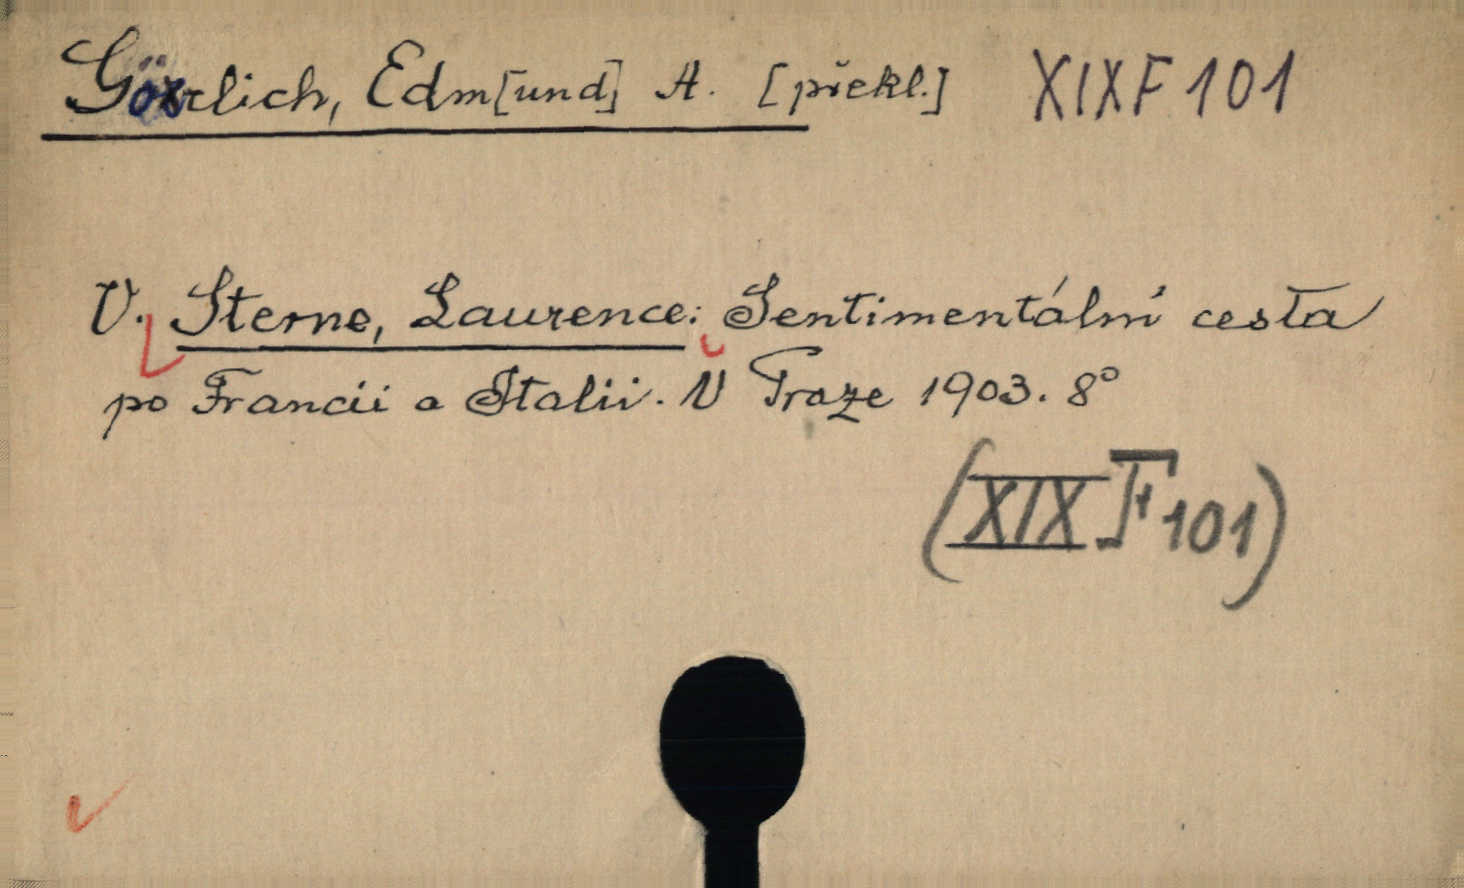 Görlich, Edm[und] A. [překl.] XIX F 101
V. Sterne, Laurence: Sentimentální cesta
po Francii a Italii. V Praze 1903. 8°
(XIX F 101)